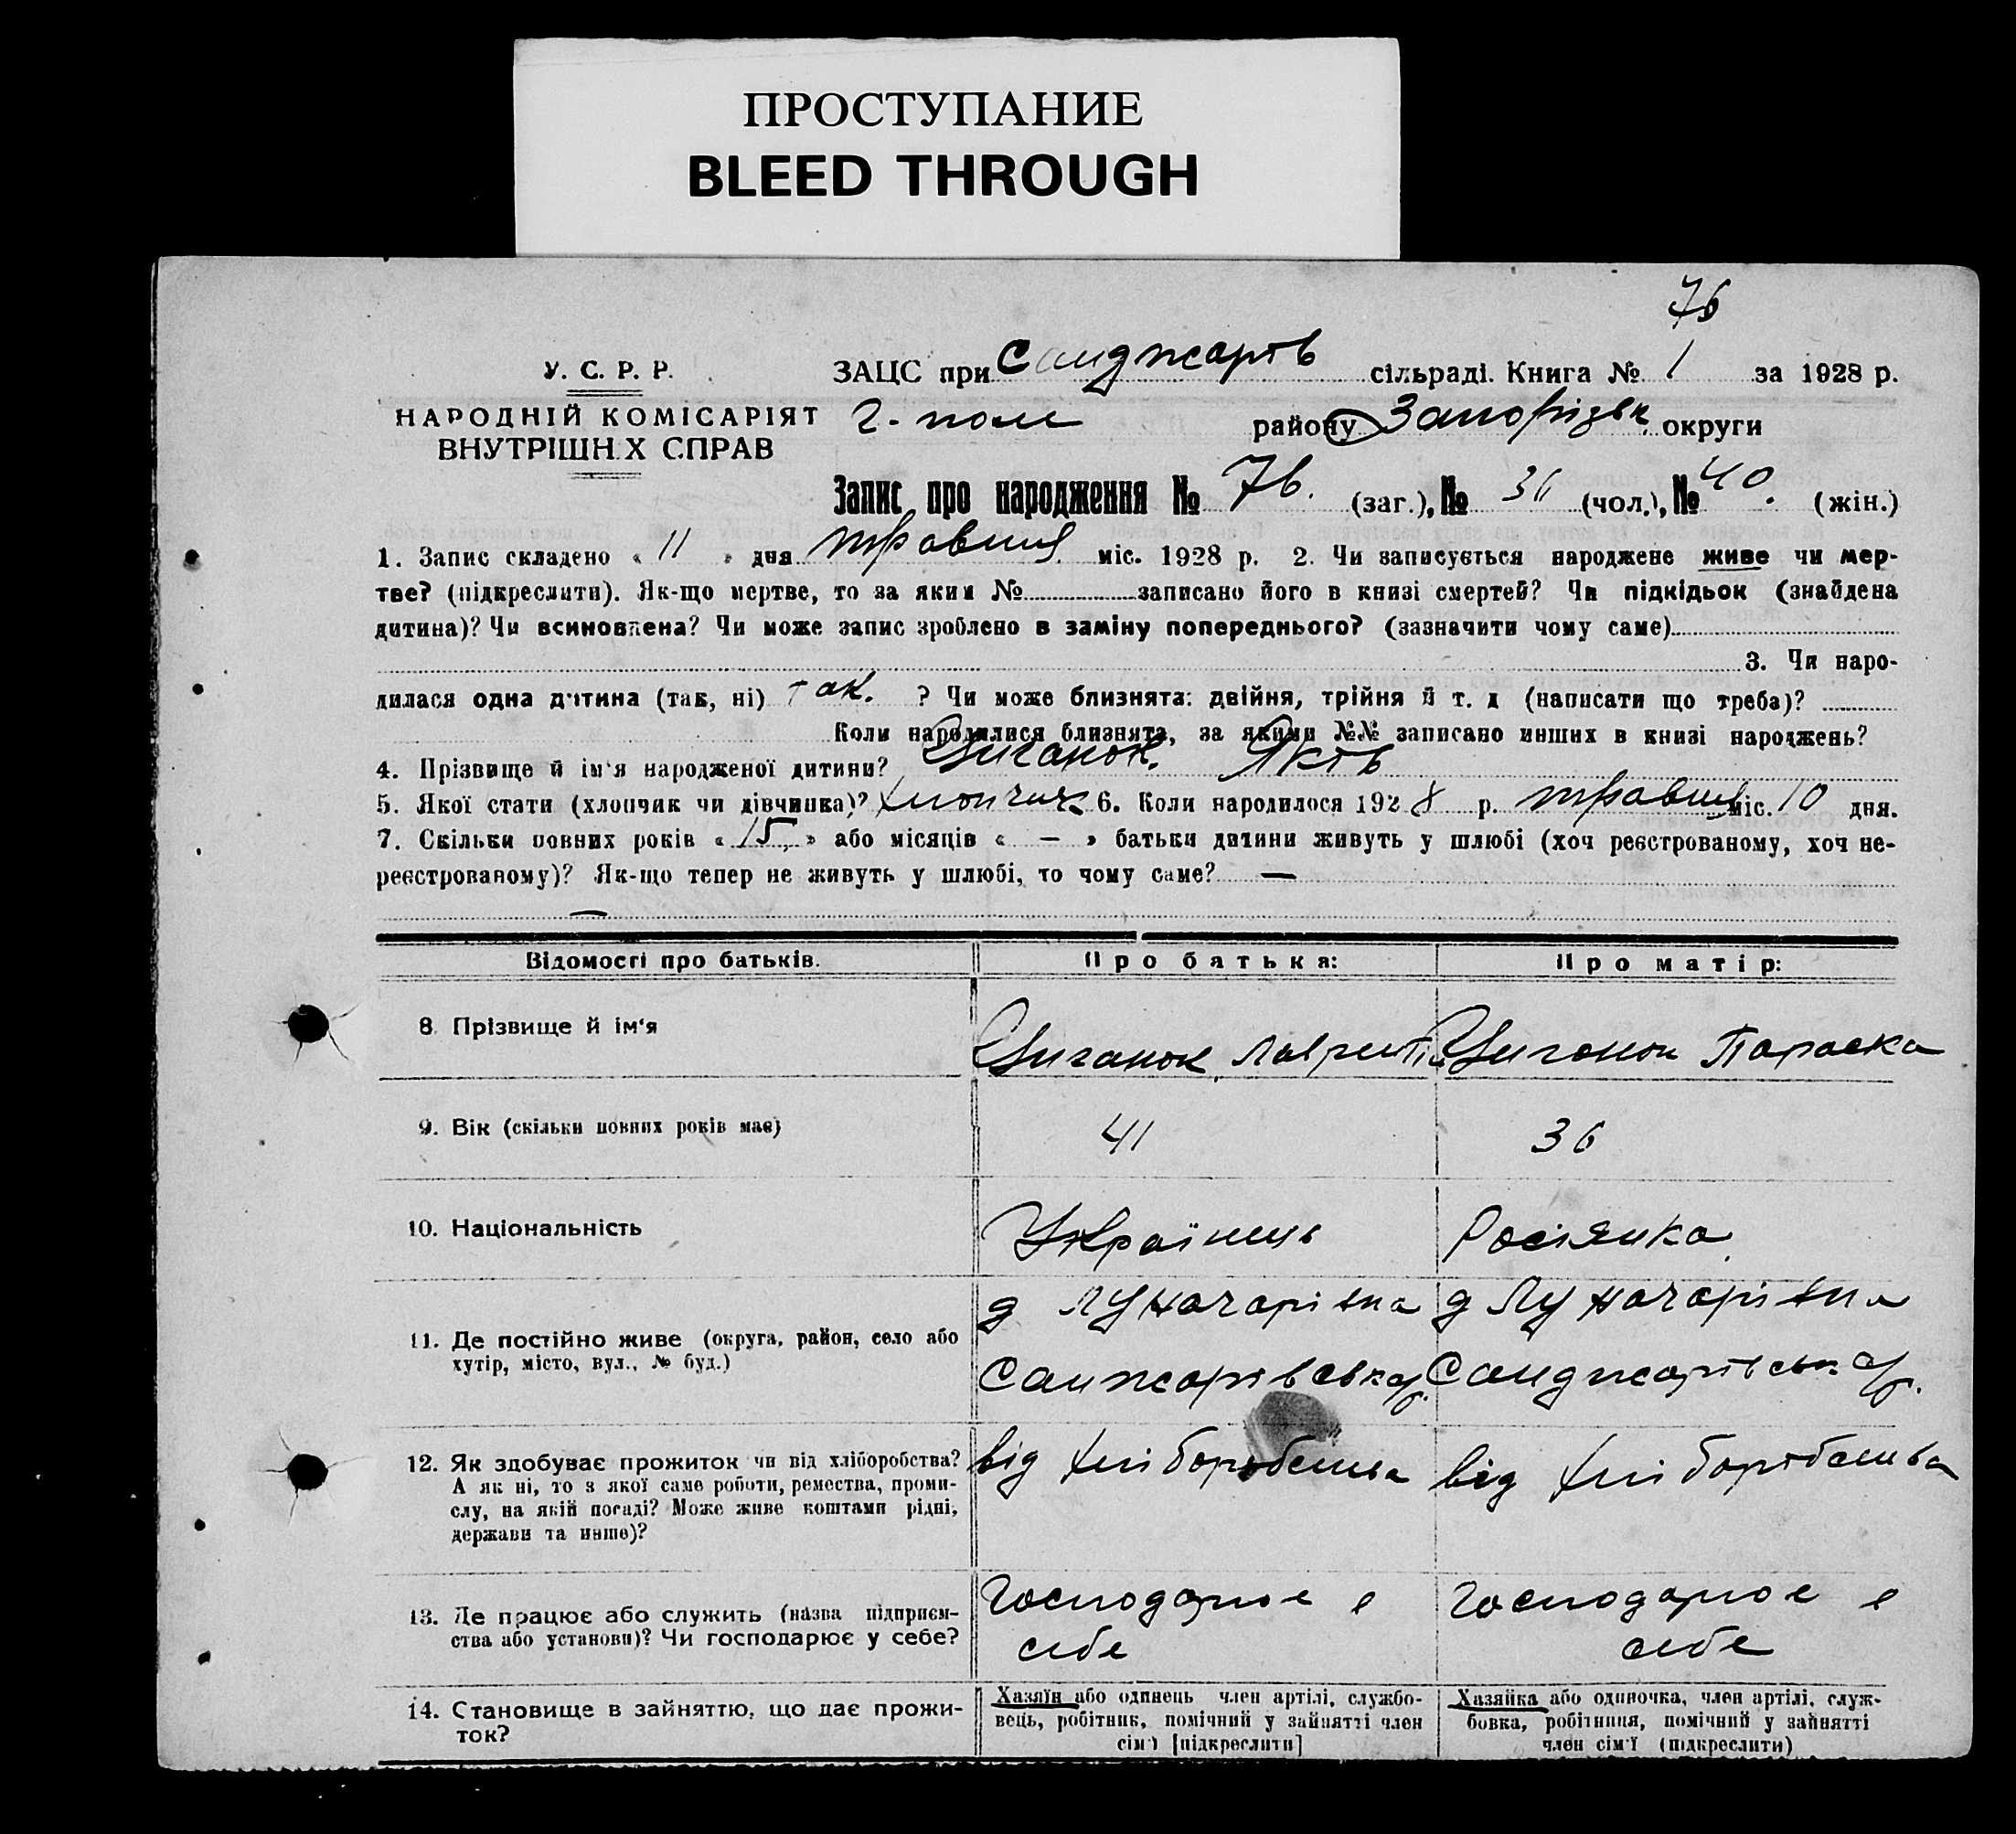 ПРОСТУПАНИЕ
BLEED THROUGH
76
У. С. Р. Р.
НАРОДНІЙ КОМІСАРІЯТ
ВНУТРІШН Х СПРАВ
ЗАЦС при Санджарів сільраді. Книга № 1 за 1928 р.
Г-поле району Запорізьк округи
Запис про народження № 76. (заг.), № 36 (чол.), № 40. (жін.)
1. Запис складено « 11 » дня травня міс. 1928 р. 2. Чи записується народжене живе чи мер-
тве? (підкреслити). Як-що мертве, то за яким № записано його в книзі смертей? Чи підкідьок (знайдена
дитина)? Чи всиновлена? Чи може запис зроблено в заміну попереднього? (зазначити чому саме)
3. Чи наро-
дилася одна дитина (так, ні) так. ? Чи може близнята: двійня, трійня й т. д (написати що треба)?
Коли народилися близнята, за якими №№ записано инших в книзі народжень?
4. Прізвище й ім'я народженої дитини? Циганок. Яків
5. Якої стати (хлопчик чи дівчинка)? хлопчик 6. Коли народилося 1928 р. травня міс. 10 дня.
7. Скільки повних років « 15, » або місяців « — » батьки дитини живуть у шлюбі (хоч реєстрованому, хоч не-
реєстрованому)? Як-що тепер не живуть у шлюбі, то чому саме? —
—
Відомості про батьків. Про батька: Про матір:
8. Прізвище й ім'я Циганок Лаврентій Циганок Параска
9. Вік (скільки повних років має) 41 36
10. Національність Українець Росіянка
11. Де постійно живе (округа, район, село або
хутір, місто, вул., № буд.)
д Луначарівка д Луначарівка
Санжарівськ с/р. Санджарівськ с/р.
12. Як здобуває прожиток чи від хліборобства?
А як ні, то з якої саме роботи, ремества, проми-
слу, на якій посаді? Може живе коштами рідні,
держави та инше)?
від хліборобства від хліборобства
13. Де працює або служить (назва підприєм-
ства або установи)? Чи господарює у себе?
Господарює в Господарює в
себе себе
14. Становище в зайняттю, що дає прожи-
ток?
Хазяїн або одинець член артілі, службо-
вець, робітник, помічний у зайнятті член
сім'ї [підкреслити]
Хазяйка або одиночка, член артілі, служ-
бовка, робітниця, помічний у зайнятті
член сім'ї (підкреслити)